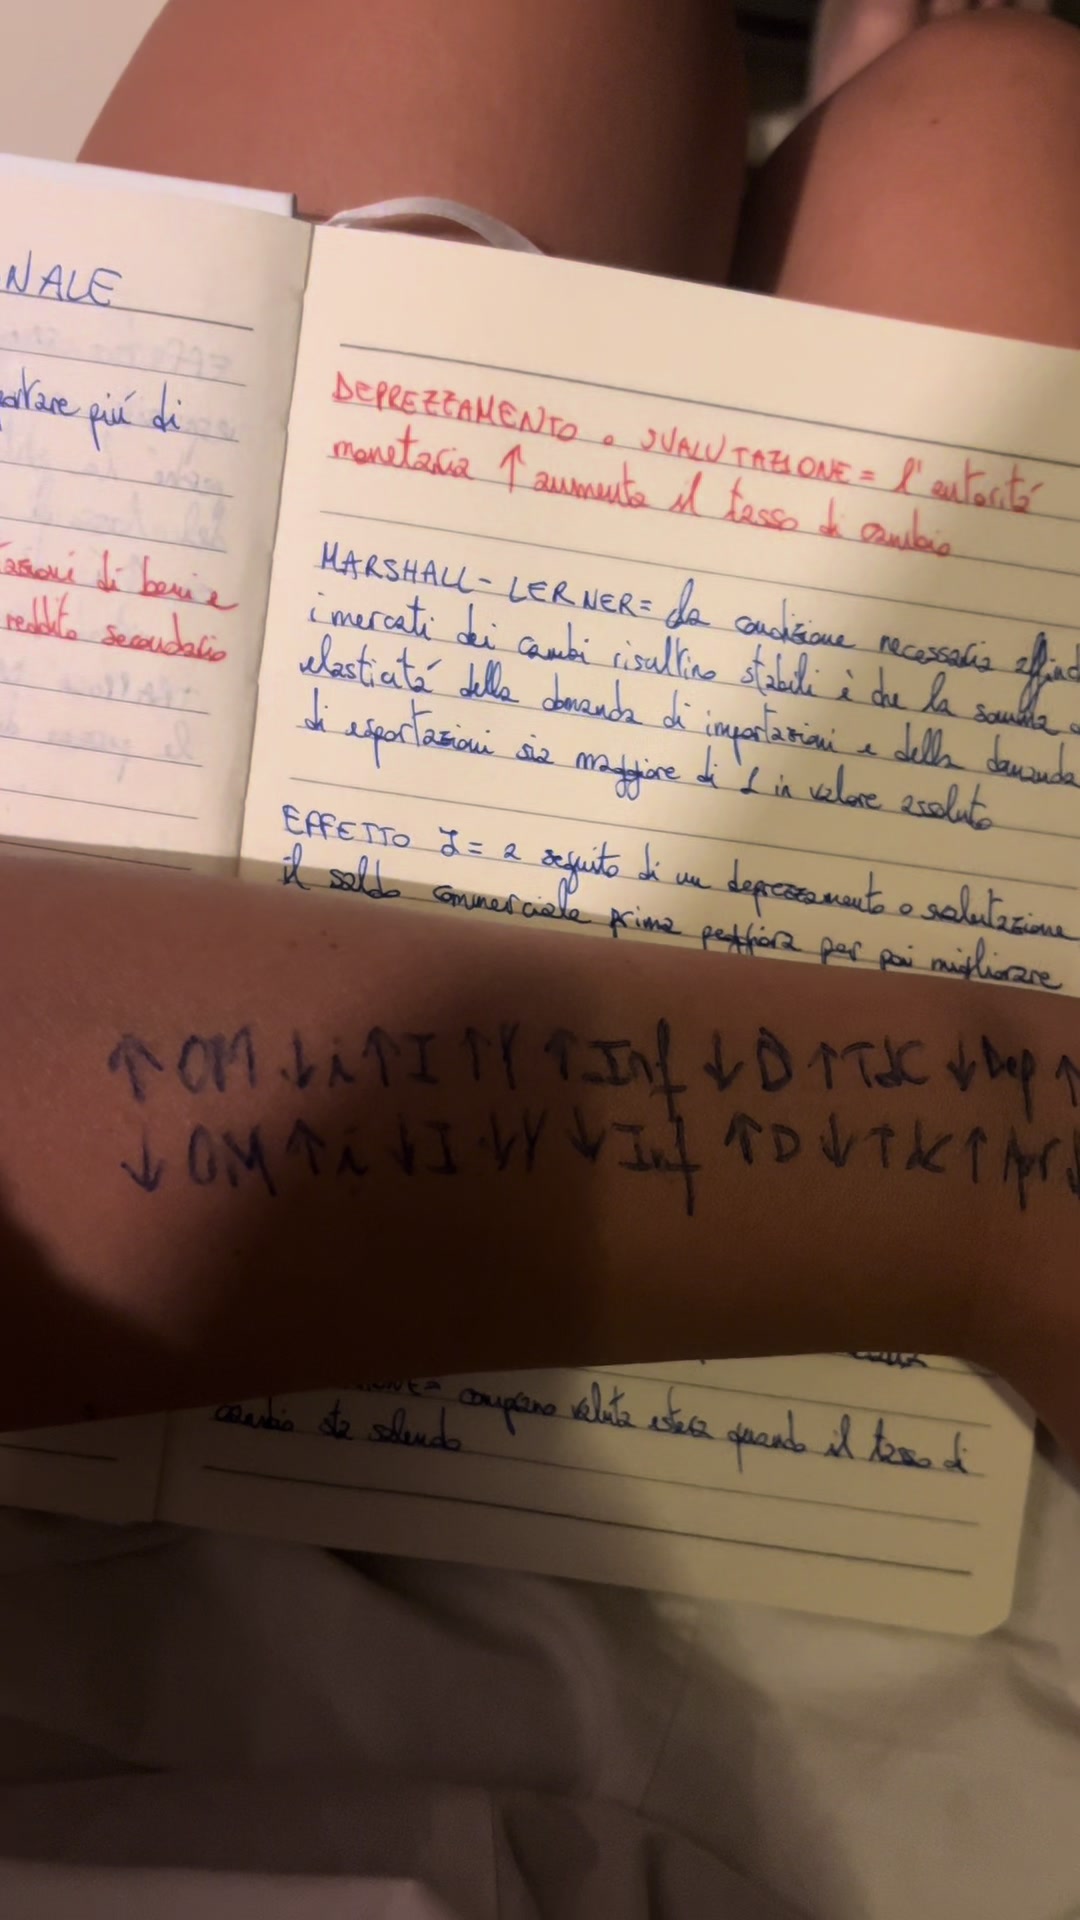 NALE
più di
di beni e
reddito secondario
DEPREZZAMENTO o SVALUTAZIONE = l'autorità
monetaria ↑ aumenta il tasso di cambio
MARSHALL-LERNER = la condizione necessaria
i mercati dei cambi risultino stabili è che la somma
elasticitá della domanda di importazioni e della domanda
di esportazioni sia maggiore di 1 in valore assoluto
EFFETTO J = a seguito di un deprezzamento o svalutazione
il saldo commerciale prima peggiora per poi migliorare
↑ OM ↓ i ↑ I ↑ Y ↑ Inf ↓ D ↑ TdC ↓ Dep ↑
↓ OM ↑ i ↓ I ↓ Y ↓ Inf ↑ D ↓ TdC ↑ Apr ↓
comprano valuta estera quando il tasso di
cambio sta salendo